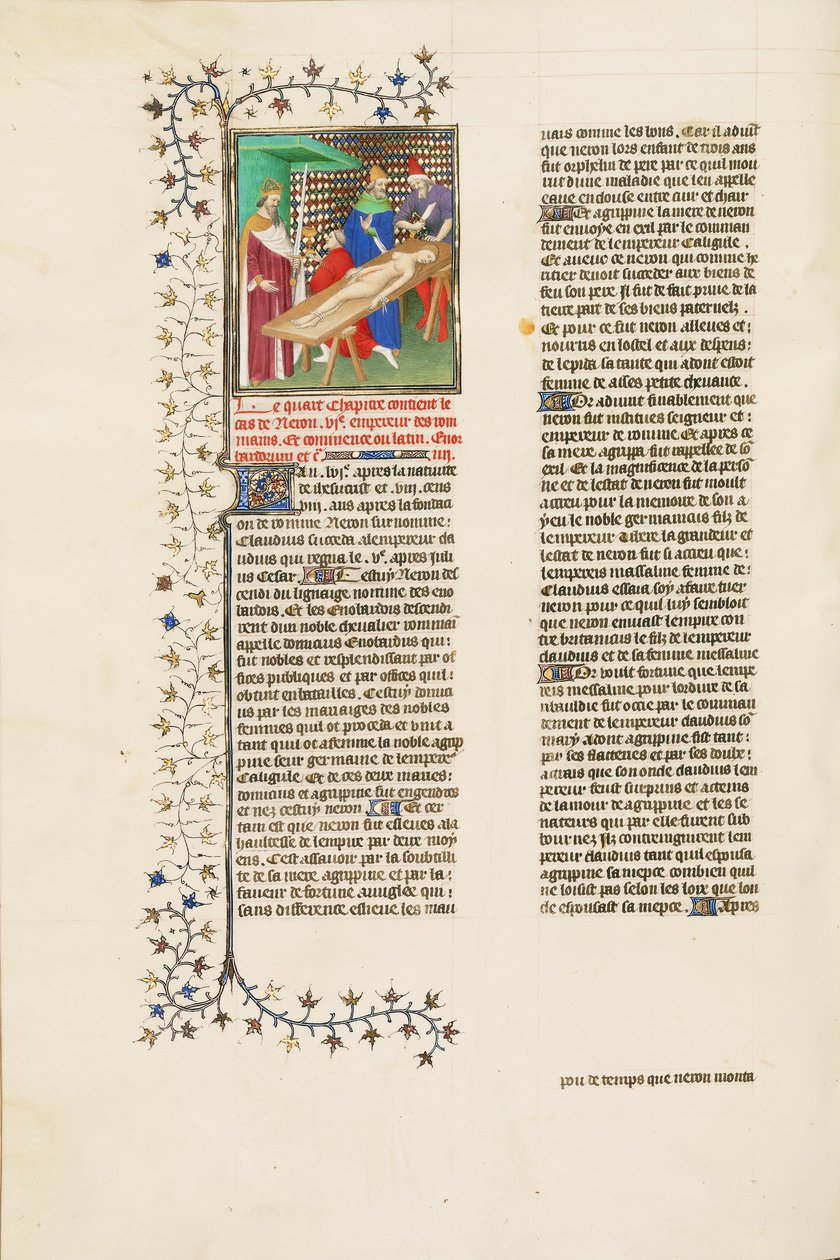 Le quart Chapitre contient le
cas de Neron .vjͤ. empereur des rom
mains. Et commence ou latin. Enor
bardorum et cͬ iiij.
L an .lvjͤ. apres la natiuite
de ihesucrist et .viij. cens
viij. ans apres la fondaci
on de romme Neron surnomme:
Claudius succeda alempereur cla
udius qui regna le .vͤ. apres juli
us Cesar. Cestuy Neron des
cendi du lignaige nomme des eno
bardois. Et les Enobardois descendi
rent dun noble cheualier rommaī
appelle domicius Enobardus qui:
fut nobles et resplendissant par of
fices publiques et par offices quil:
obtint en batailles. Cestuy domici
us par les mariaiges des nobles
femmes quil ot proceda et vint a
tant quil ot a femme la noble agrip
pine seur germaine de lempereͬ
Caligule. Et de ces deux maries:
domicius et agrippine fut engendres
et nez cestuy neron. Et cer
tain est que neron fut esleues ala
haultesse de lempire par deux moy
ens. Cest assauoir par la soubtilli
te de sa mere agrippine et par la:
faueur de fortune auugle qui:
sans difference eslieue les mau
uais comme les bons. Car il aduit
que neron lors enfant de trois ans
fut orphelin de pere par ce quil mou
rut dune maladie que len appelle
eaue enclouse entre cuir et chair
Et agrippine la mere de neron
fut enuoye en exil par le comman
dement de lempereur Caligule.
Et auecc ce neron qui comme he
ritier deuoit succeder aux biens de
feu son pere. Il fut de fait priue de la
tierce part de ses biens paternelz.
Et pour ce fut neron alleues et:
nourris en lostel et aux despens:
de lepida sa tante qui adont estoit
femme de asses petite cheuance.
Or aduint finablement que
neron fut institues seigneur et:
empereur de romme. Et apres ce
sa mere agrippa fut rappellee de sō
exil. Et la magnificence de la persō
ne et de lestat de neron fut moult
accreu pour la memoire de son a
yeu le noble germanicus filz de
lempereur Tibere la grandeur et
lestat de neron fut si accreu que:
lempereis massaline femme de:
Claudius essaia soy a faire tuer
neron pour ce quil luy sembloit
que neron enuiast lempire con
tre britanicus le filz de lempereur
claudius et de sa femme messaline
Or voult fortune que lempe
reis messaline pour lordure de sa
ribauldie fut occie par le comman
dement de lempereur claudius sō
mary adont agrippine fist tant:
par ses flatteries et par ses doulx:
actrais que son oncle claudius lem
pereur feust surpuns et actenis
de lamour de agrippine et les se
nateurs qui par elle furent sub
tournez Ilz contraignirent lem
pereur claudius tant quil espousa
agrippine sa niepce combien quil
ne loisist pas selon les loix que lon
cle espousast sa niepce. Apres
pou de temps que neron monta